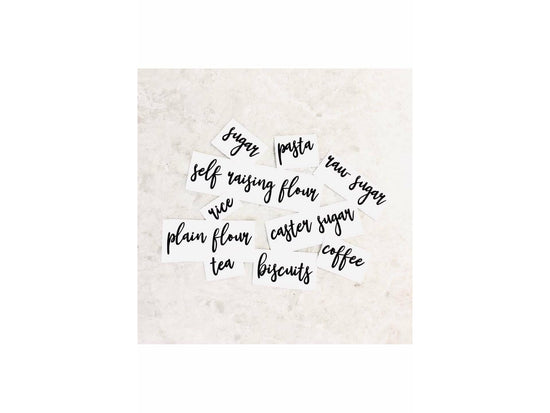 sugar
pasta
raw sugar
self raising flour
rice
caster sugar
plain flour
coffee
tea
biscuits